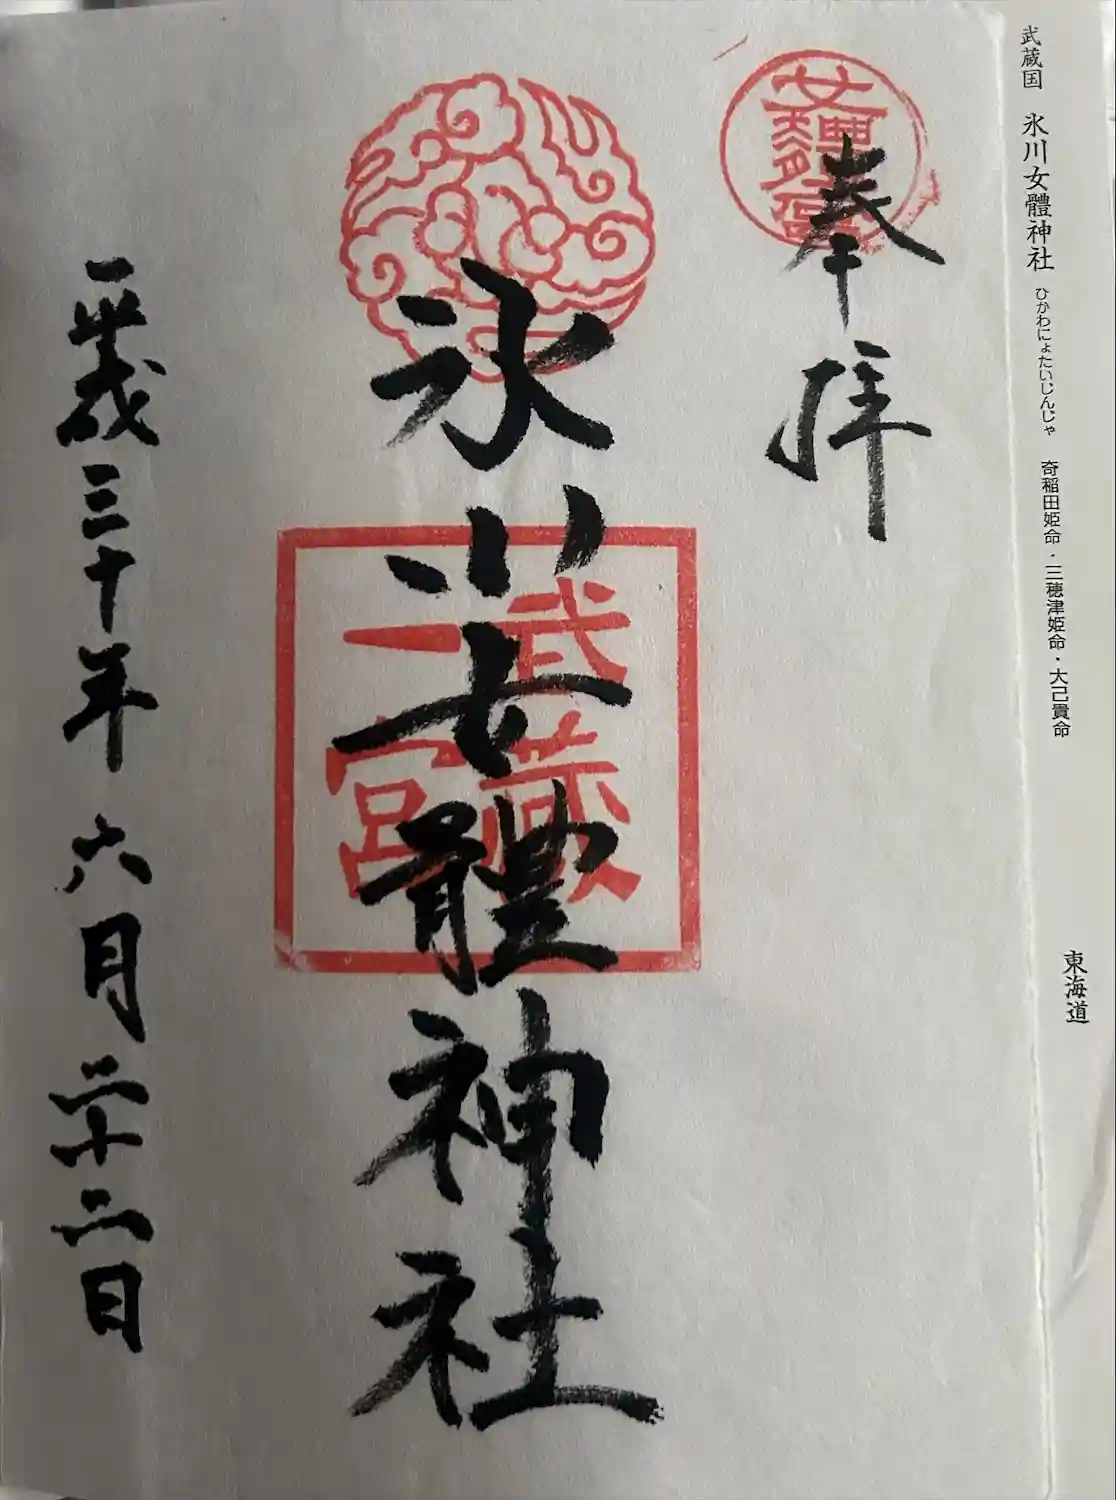 武蔵国 氷川女體神社 ひかわにょたいじんじゃ 奇稲田姫命・三穂津姫命・大己貴命 東海道
奉拝
氷川女體神社
武蔵
一宮
平成三十年六月二十二日